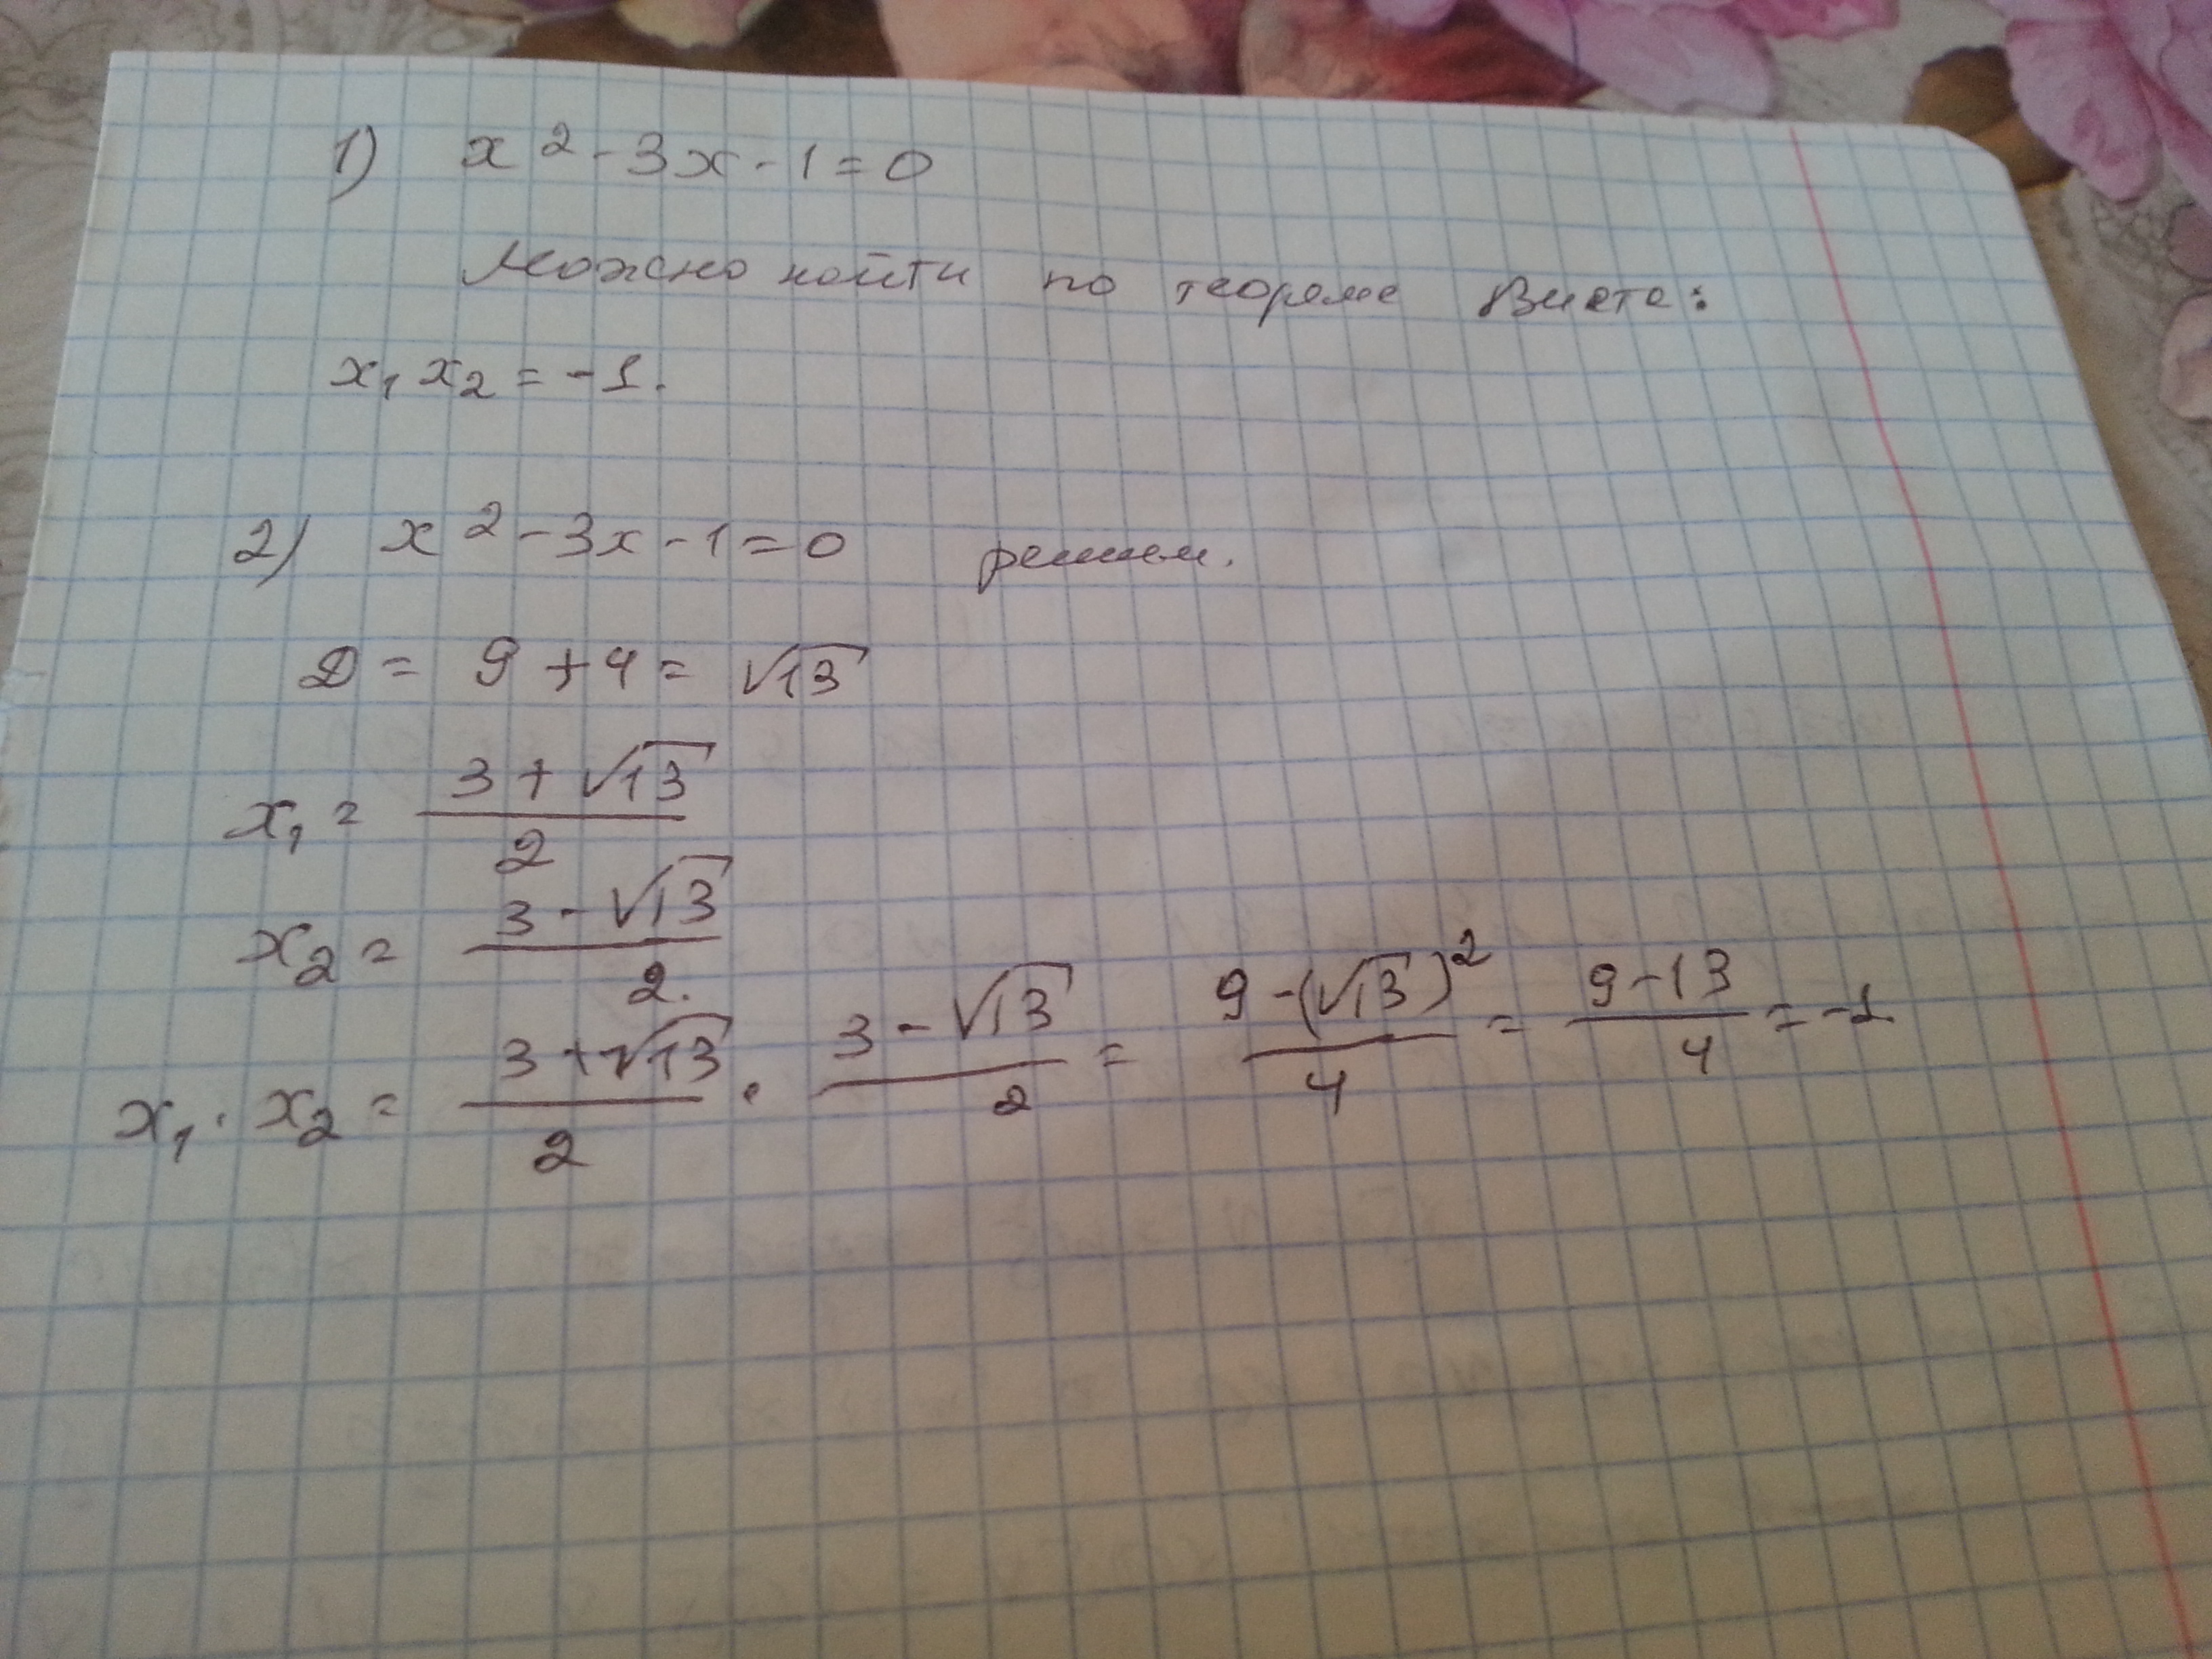 1) x² - 3x - 1 = 0
Можно найти по теореме Виета:
x₁ x₂ = -1.
2) x² - 3x - 1 = 0 решим.
D = 9 + 4 = √13
x₁ = (3 + √13)/2
x₂ = (3 - √13)/2.
x₁ · x₂ = (3 + √13)/2 · (3 - √13)/2 = (9 - (√13)²)/4 = (9 - 13)/4 = -1.